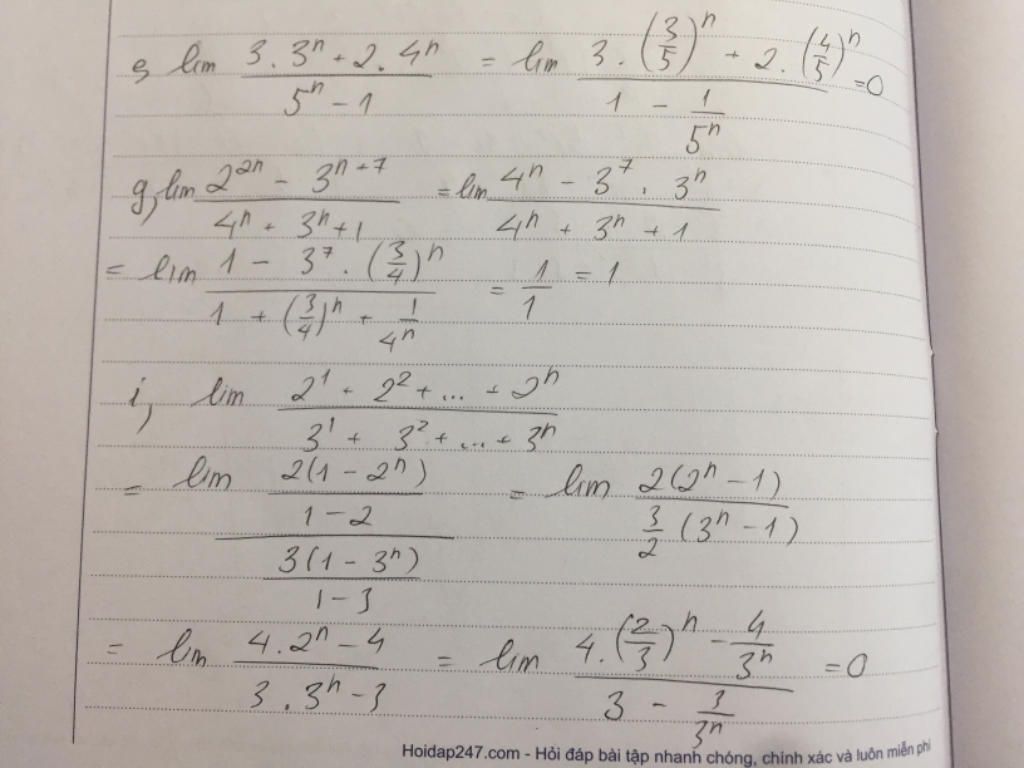 e, lim (3.3ⁿ + 2.4ⁿ)/(5ⁿ - 1) = lim (3.(3/5)ⁿ + 2.(4/5)ⁿ)/(1 - 1/5ⁿ) = 0
g, lim (2²ⁿ - 3ⁿ⁺⁷)/(4ⁿ + 3ⁿ + 1) = lim (4ⁿ - 3⁷ . 3ⁿ)/(4ⁿ + 3ⁿ + 1)
= lim (1 - 3⁷ . (3/4)ⁿ)/(1 + (3/4)ⁿ + 1/4ⁿ) = 1/1 = 1
i, lim (2¹ + 2² + ... + 2ⁿ)/(3¹ + 3² + ... + 3ⁿ)
= lim (2(1 - 2ⁿ)/(1 - 2))/(3(1 - 3ⁿ)/(1 - 3)) = lim (2(2ⁿ - 1))/(3/2 (3ⁿ - 1))
= lim (4.2ⁿ - 4)/(3.3ⁿ - 3) = lim (4.(2/3)ⁿ - 4/3ⁿ)/(3 - 3/3ⁿ) = 0
Hoidap247.com - Hỏi đáp bài tập nhanh chóng, chính xác và luôn miễn phí